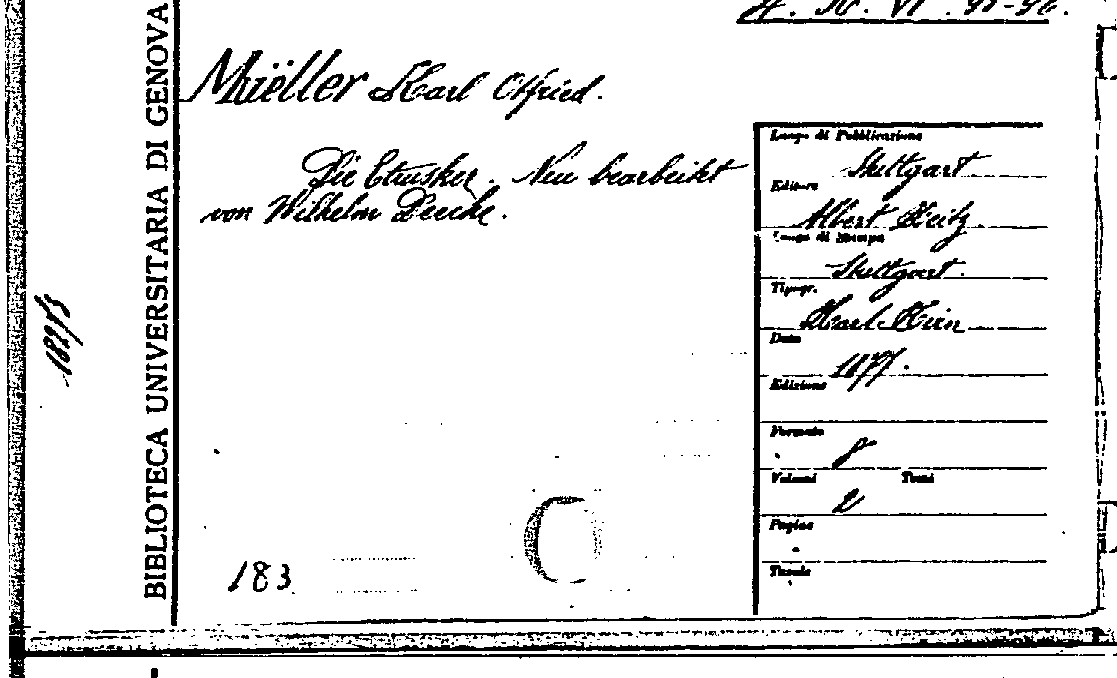 BIBLIOTECA UNIVERSITARIA DI GENOVA
VI. 95-96.
Müeller Karl Otfried.
Die Etrusker. Neu bearbeitet
von Wilhelm Deecke.
183
Luogo di Pubblicazione
Stuttgart.
Editore
Albert Heitz
Luogo di Stampa
Stuttgart.
Tipogr.
Karl Hirn
Data
1877.
Edizione
Formato
8
Volumi Tomi
2
Pagine
Tavole